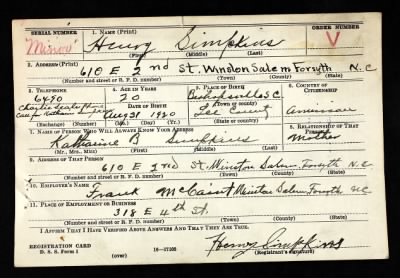 SERIAL NUMBER 1. NAME (Print) ORDER NUMBER
Henry Simpkins V
(First) (Middle) (Last)
2. ADDRESS (Print)
610 E 2nd St. Winston Salem Forsyth N.C
(Number and street or R. F. D. number) (Town) (County) (State)
3. TELEPHONE 4. AGE IN YEARS 5. PLACE OF BIRTH 6. COUNTRY OF CITIZENSHIP
6490 20 Bishopville S.C.
DATE OF BIRTH (Town or county)
Aug 31 1920 Lee County American
(Exchange) (Number) (Mo.) (Day) (Yr.) (State or country)
7. NAME OF PERSON WHO WILL ALWAYS KNOW YOUR ADDRESS 8. RELATIONSHIP OF THAT PERSON
Katharine B Simpkins Mother
(Mr., Mrs., Miss) (First) (Middle) (Last)
9. ADDRESS OF THAT PERSON
610 E 2nd St. Winston Salem, Forsyth N.C
(Number and street or R. F. D. number) (Town) (County) (State)
10. EMPLOYER'S NAME
Frank Winston Salem Forsyth N.C
11. PLACE OF EMPLOYMENT OR BUSINESS
318 E 4th St.
(Number and street or R. F. D. number) (Town) (County) (State)
I AFFIRM THAT I HAVE VERIFIED ABOVE ANSWERS AND THAT THEY ARE TRUE.
REGISTRATION CARD
D. S. S. Form 1 (over) 16—17105 Henry Simpkins
(Registrant's signature)